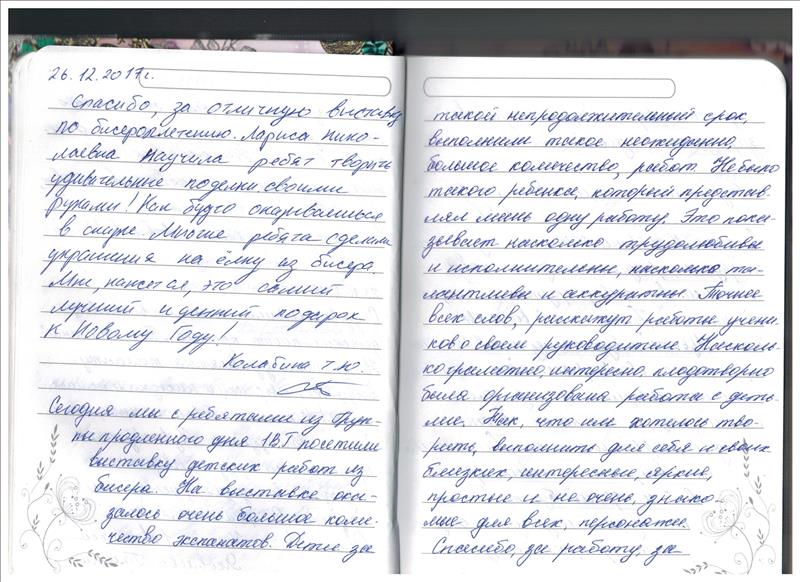 26.12.2017г.
Спасибо, за отличную выставку
по бисероплетению. Лариса Нико-
лаевна научила ребят творить
удивительные поделки своими
руками! Как будто оказываешься
в сказке. Многие ребята сделали
украшения на ёлку из бисера
Мне, кажется, это самый
лучший и ценный подарок
к Новому Году!
Колабина Т.Ю.
Сегодня мы с ребятами из Груп-
пы продленного дня 1ВГ посетили
выставку детских работ из
бисера. На выставке ока-
залось очень большое коли-
чество экспонатов. Дети за
такой непродолжительный срок,
выполнили такое неожиданно,
большое количество, работ. Не было
такого ребенка, который представ-
лял лишь одну работу. Это пока-
зывает насколько трудолюбивы
и исполнительны, насколько та-
лантливы и аккуратны. Точнее
всех слов, расскажут работы учени-
ков о своем руководителе. Насколь-
ко грамотно, интересно, плодотворно
была организована работа с деть-
ми. Так, что им хотелось тво-
рить, выполнить для себя и своих
близких, интересные, яркие,
простые и не очень, знако-
мые для всех, персонажи.
Спасибо, за работу, за